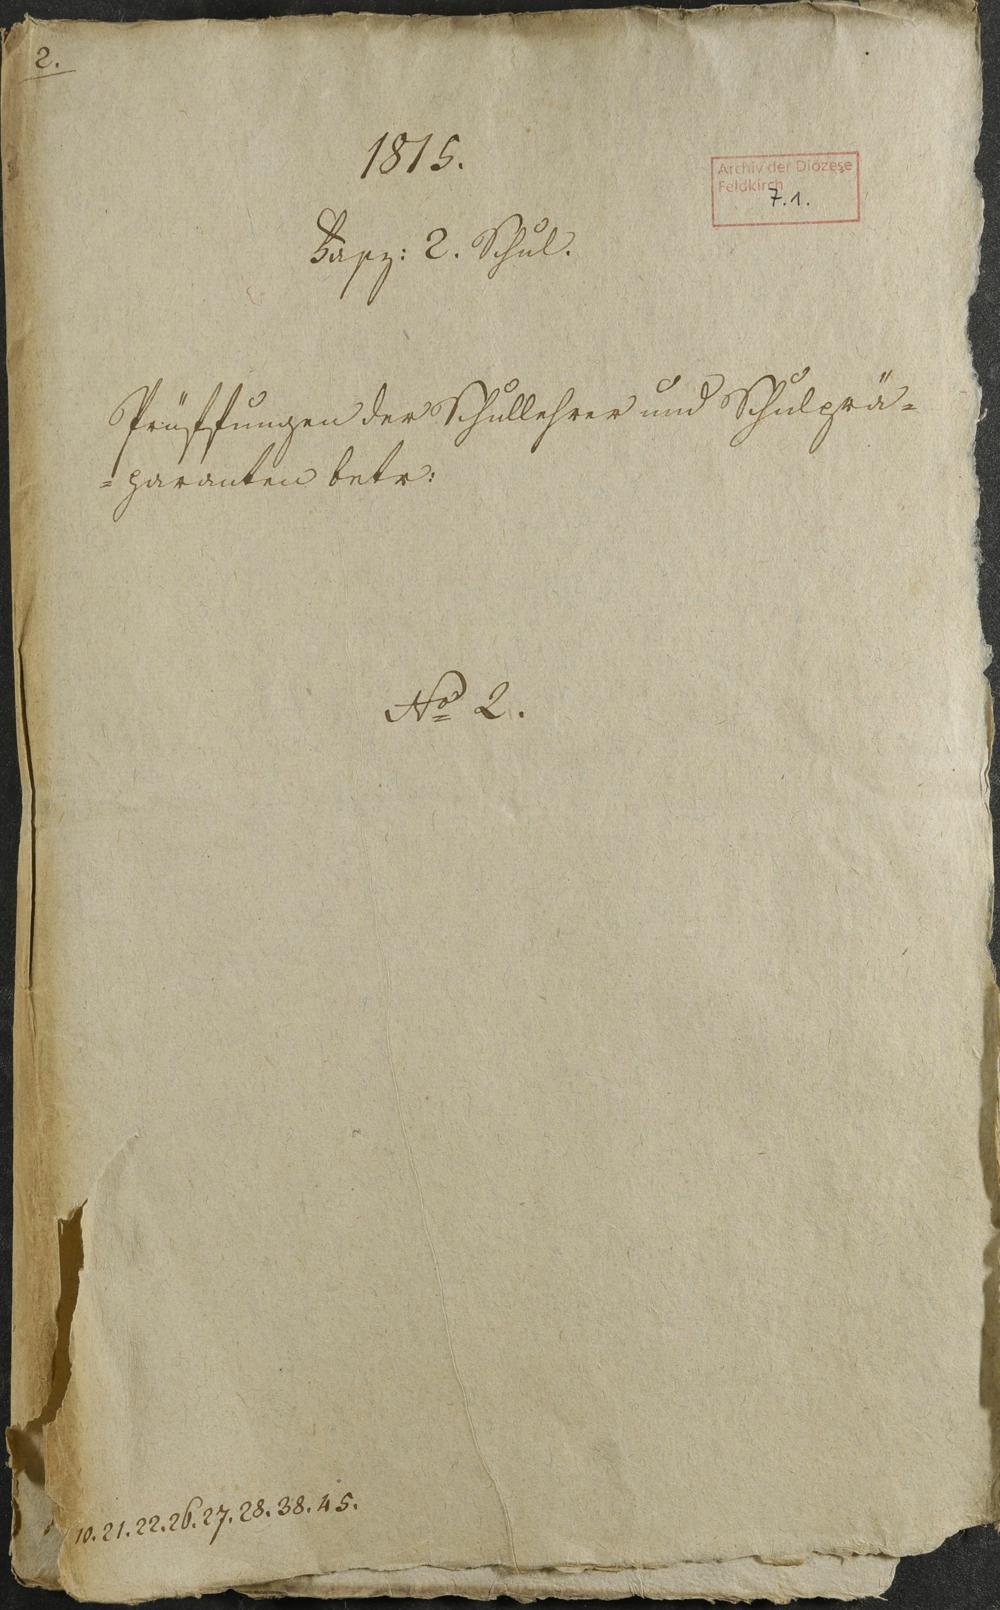 2.
1815.
Archiv der Diözese
Feldkirch
7.1.
Fasz: 2. Schul.
Prüffungen der Schullehrer und Schulprä=
=paranten betr:
No 2.
10. 21. 22. 26. 27. 28. 38. 45.